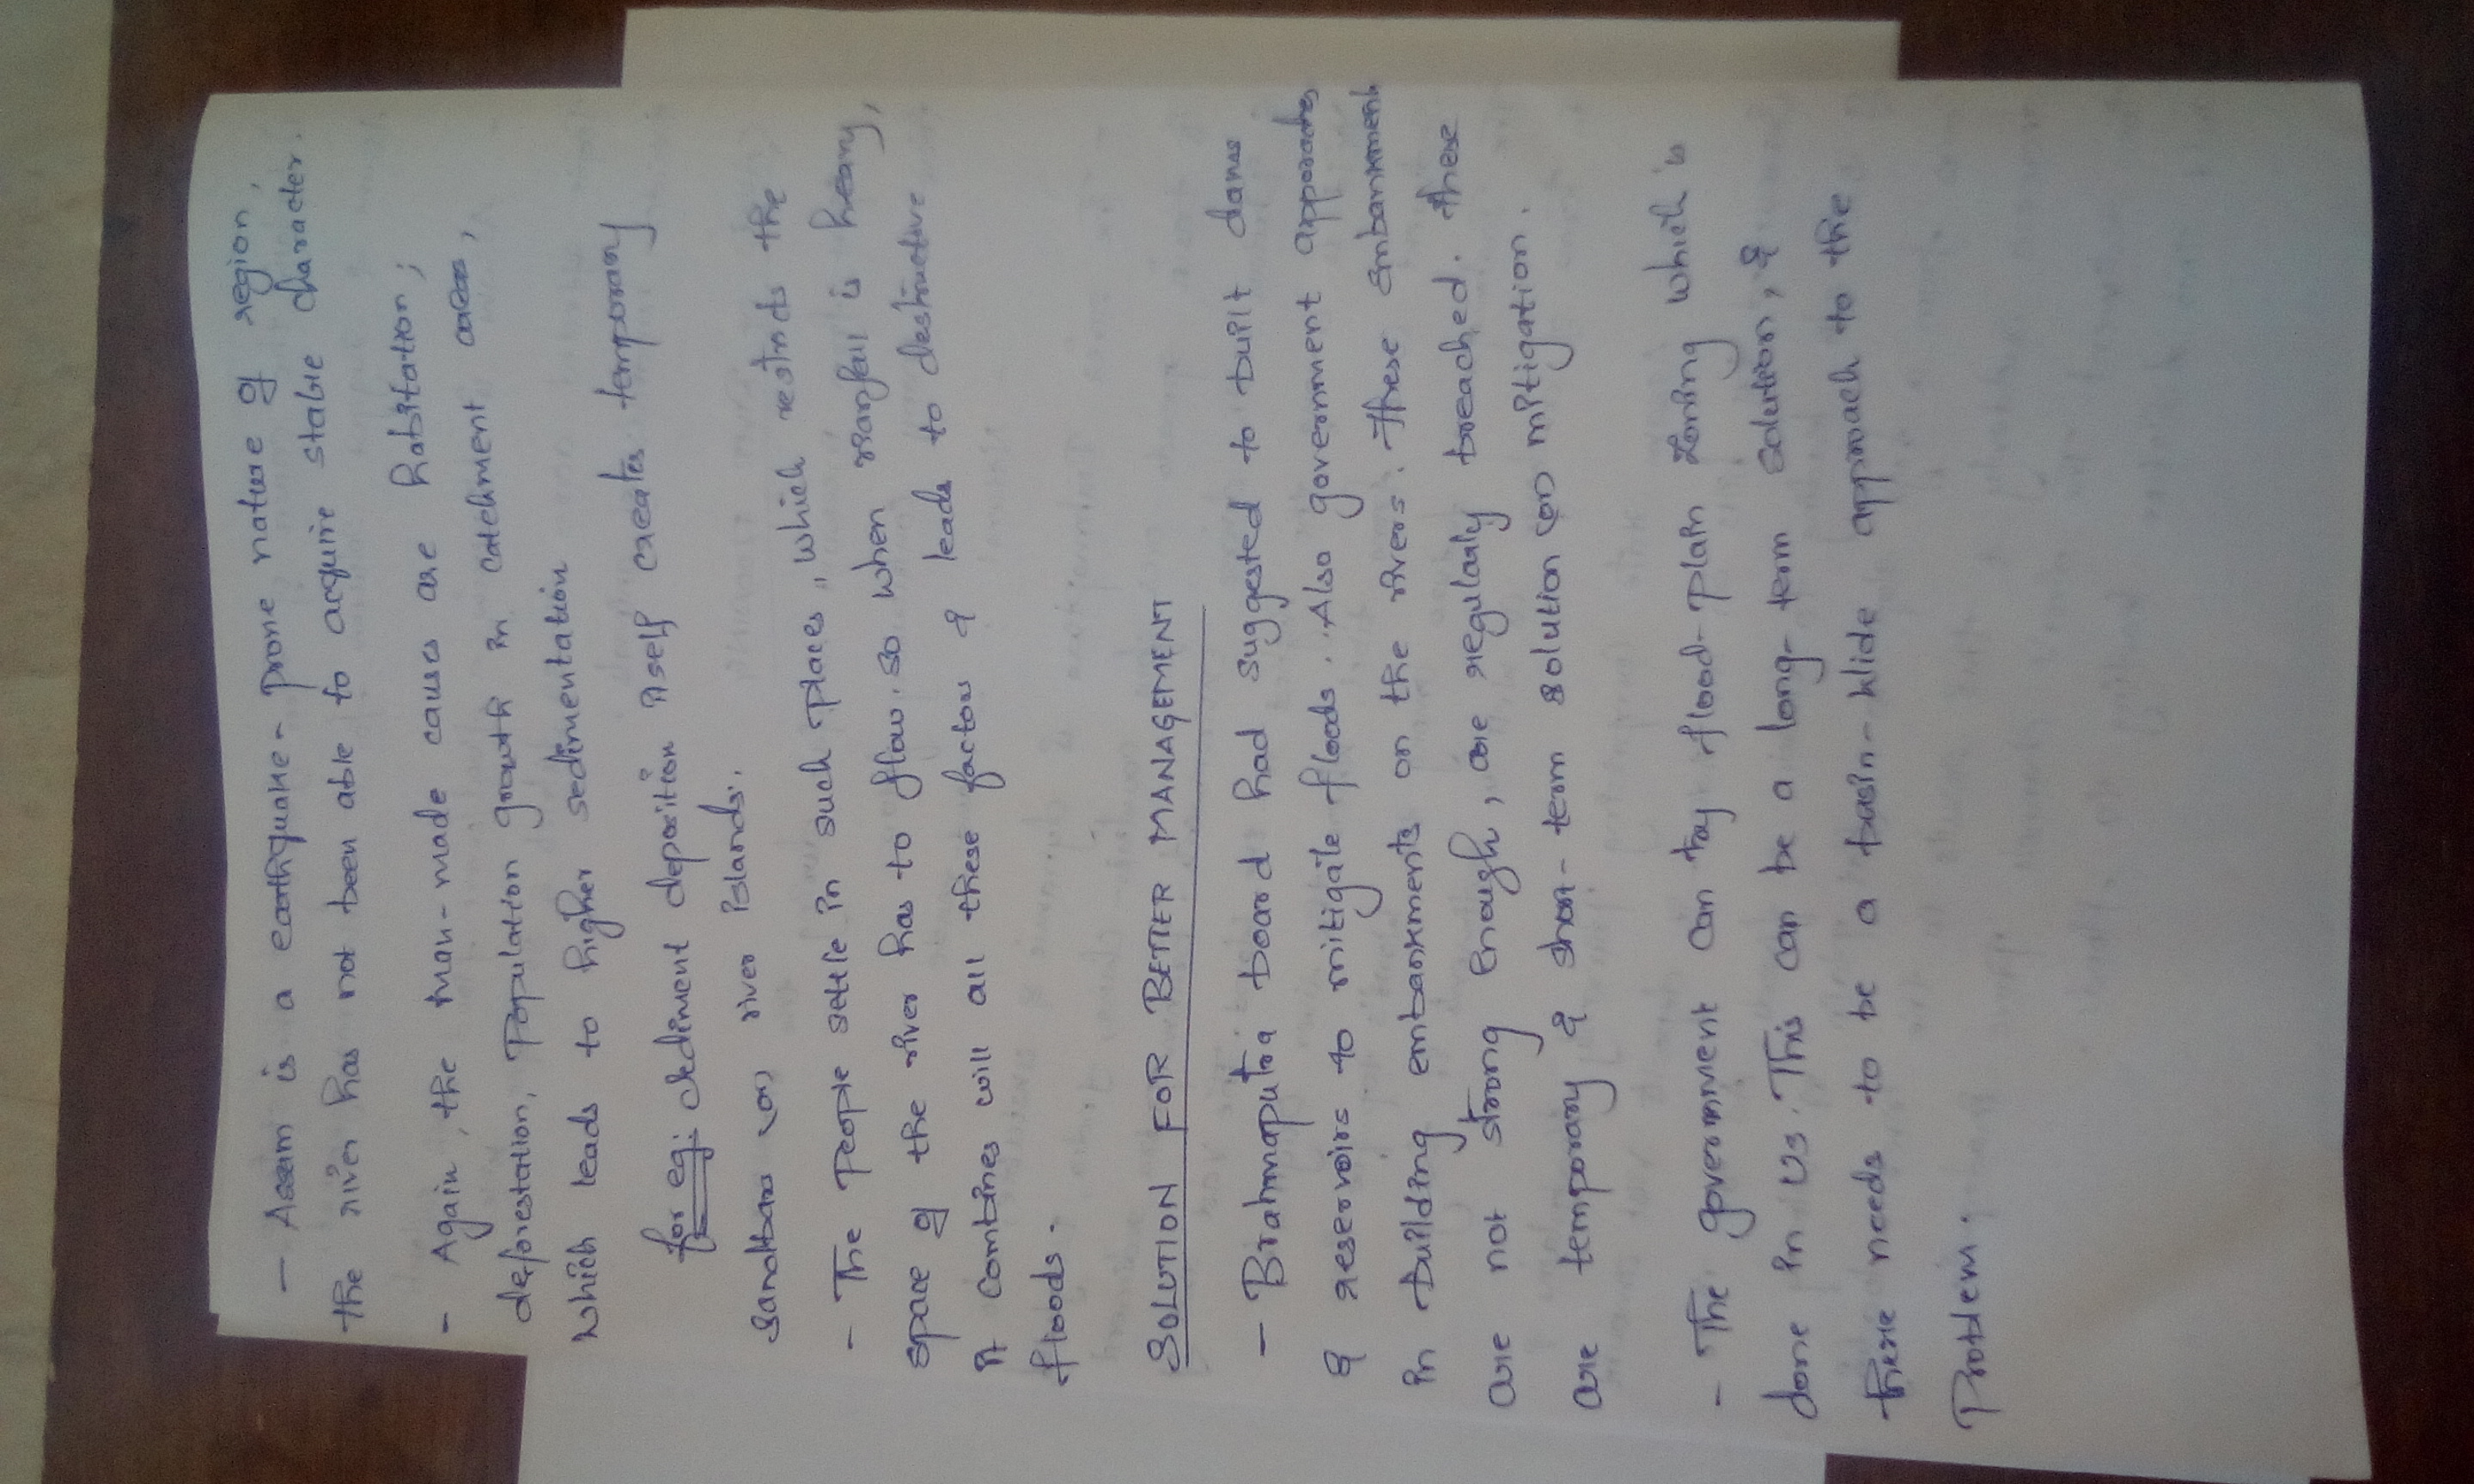 - Assam is a earthquake-prone nature of region,
the river has not been able to acquire stable character.
- Again, the man-made causes are habitation;
deforestation, Population growth in catchment areas,
which leads to higher sedimentation
for eg: Sediment deposition itself creates temporary
Sandbars (or) river islands.
- The People settle in such places, which restricts the
space of the river has to flow. so when rainfall is heavy,
it combines will all these factors & leads to destructive
floods.
SOLUTION FOR BETTER MANAGEMENT
- Brahmaputra board had suggested to built dams
& reservoirs to mitigate floods. Also government approaches
in building embankments on the rivers. These embankments
are not strong enough, are regularly breached. these
are temporary & short-term solution (or) mitigation.
- The government can try flood-plain zoning which is
done in US. This can be a long-term solution, &
there needs to be a basin-wide approach to the
Problem.